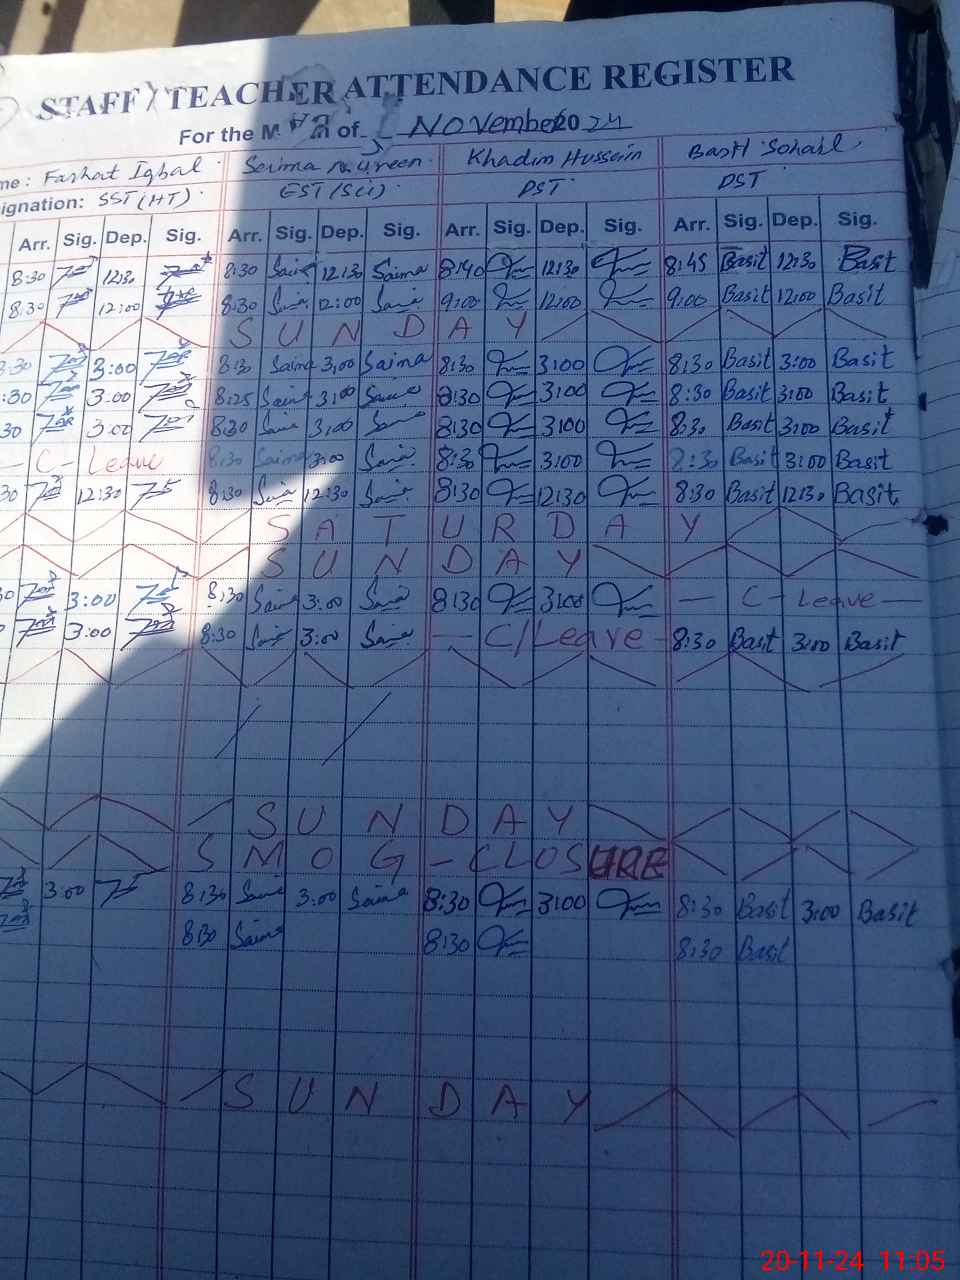 STAFF / TEACHER ATTENDANCE REGISTER
For the M of November 2024
me: Farhat Iqbal Saima Noureen Khadim Hussain Basit Sohail
signation: SST (HT) EST (Sci) PST PST
Arr. Sig. Dep. Sig. Arr. Sig. Dep. Sig. Arr. Sig. Dep. Sig. Arr. Sig. Dep. Sig.
8:30 12:30 8:30 Saima 12:30 Saima 8:40 12:30 8:45 Basit 12:30 Basit
8:30 12:00 8:30 Saima 12:00 Saima 9:00 12:00 9:00 Basit 12:00 Basit
SUNDAY
8:30 3:00 8:30 Saima 3:00 Saima 8:30 3:00 8:30 Basit 3:00 Basit
:30 3:00 8:25 Saima 3:00 Saima 8:30 3:00 8:30 Basit 3:00 Basit
30 3:00 8:30 Saima 3:00 Saima 8:30 3:00 8:30 Basit 3:00 Basit
- C - Leave 8:30 Saima 3:00 Saima 8:30 3:00 8:30 Basit 3:00 Basit
30 12:30 8:30 Saima 12:30 Saima 8:30 12:30 8:30 Basit 12:30 Basit
SATURDAY
SUNDAY
30 3:00 8:30 Saima 3:00 Saima 8:30 3:00 - C - Leave -
3:00 8:30 Saima 3:00 Saima - C/Leave - 8:30 Basit 3:00 Basit
SUNDAY
SMOG - CLOSURE
3:00 8:30 Saima 3:00 Saima 8:30 3:00 8:30 Basit 3:00 Basit
8:30 Saima 8:30 8:30 Basit
SUNDAY
20-11-24 11:05